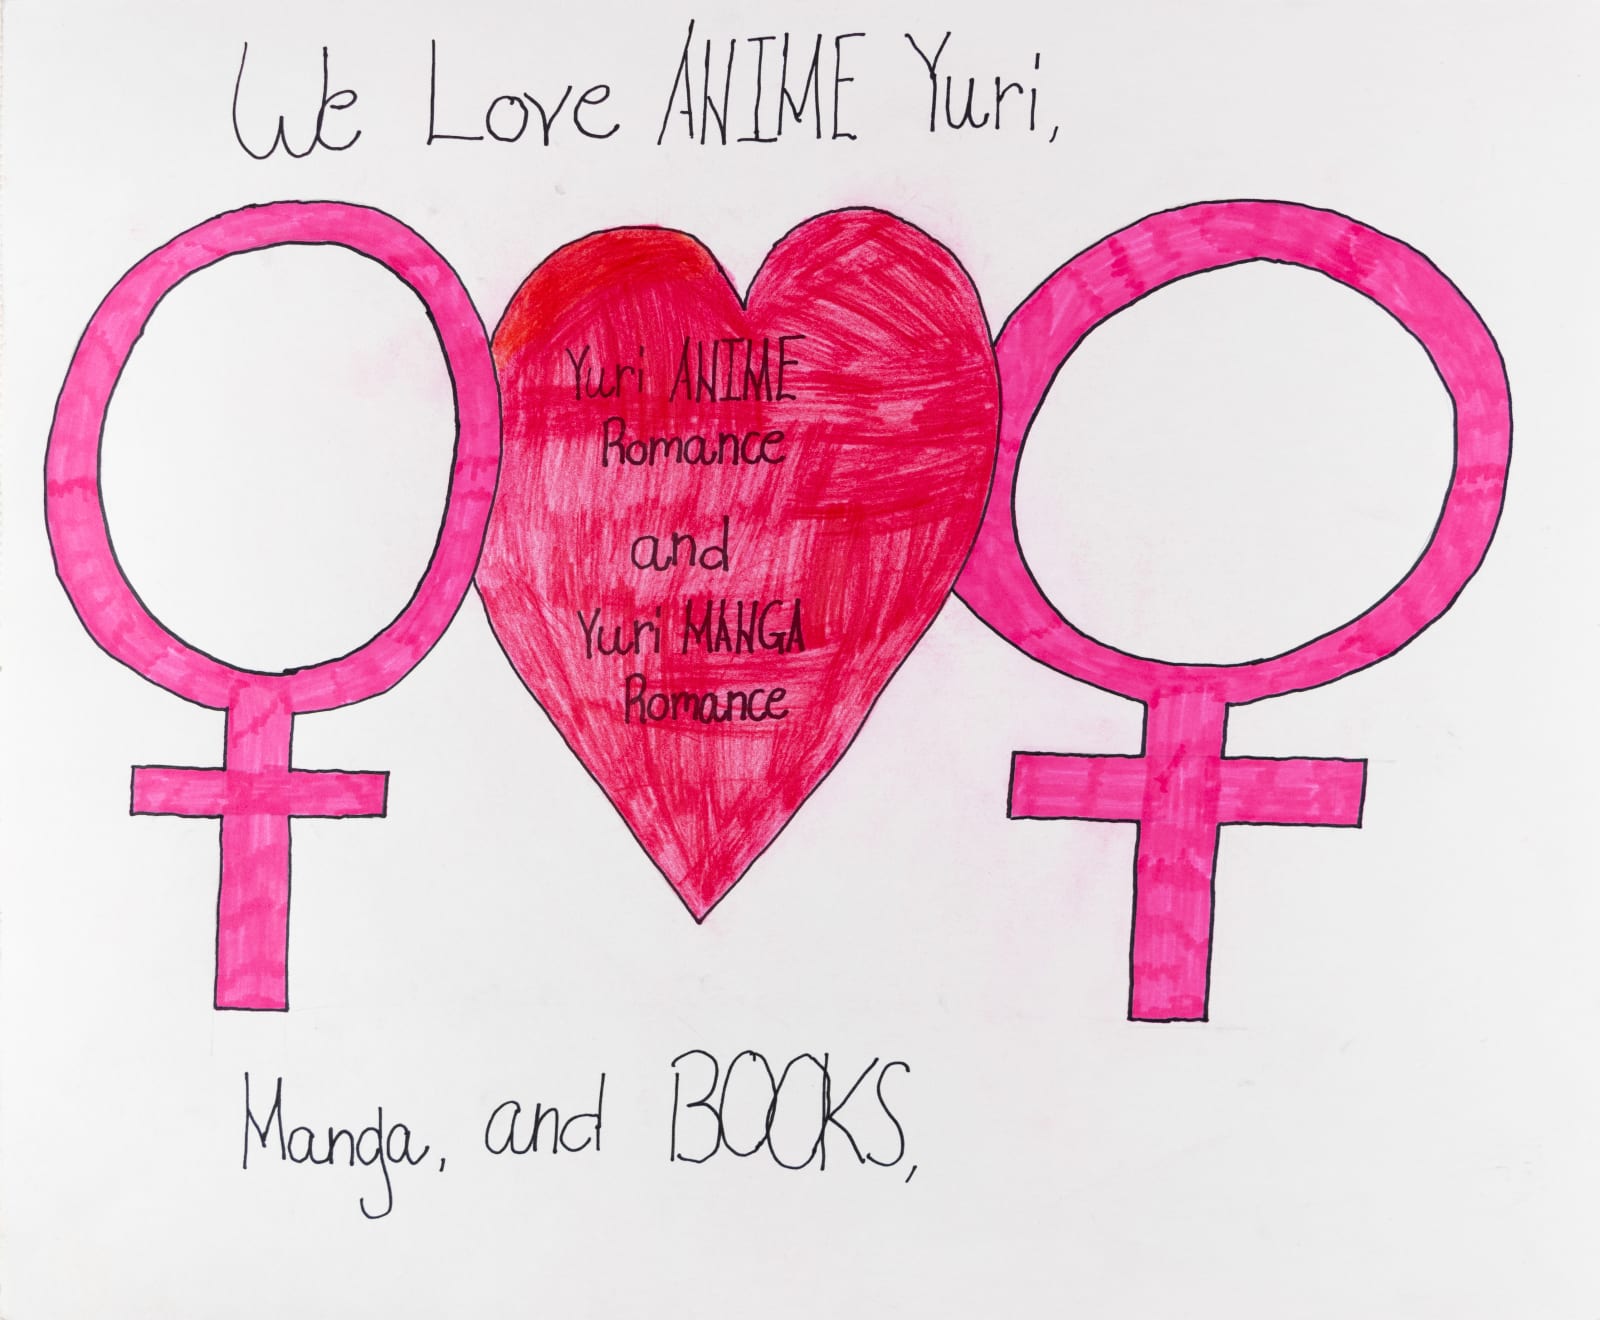 We Love ANIME Yuri,
Yuri ANIME
Romance
and
Yuri MANGA
Romance
Manga, and BOOKS,